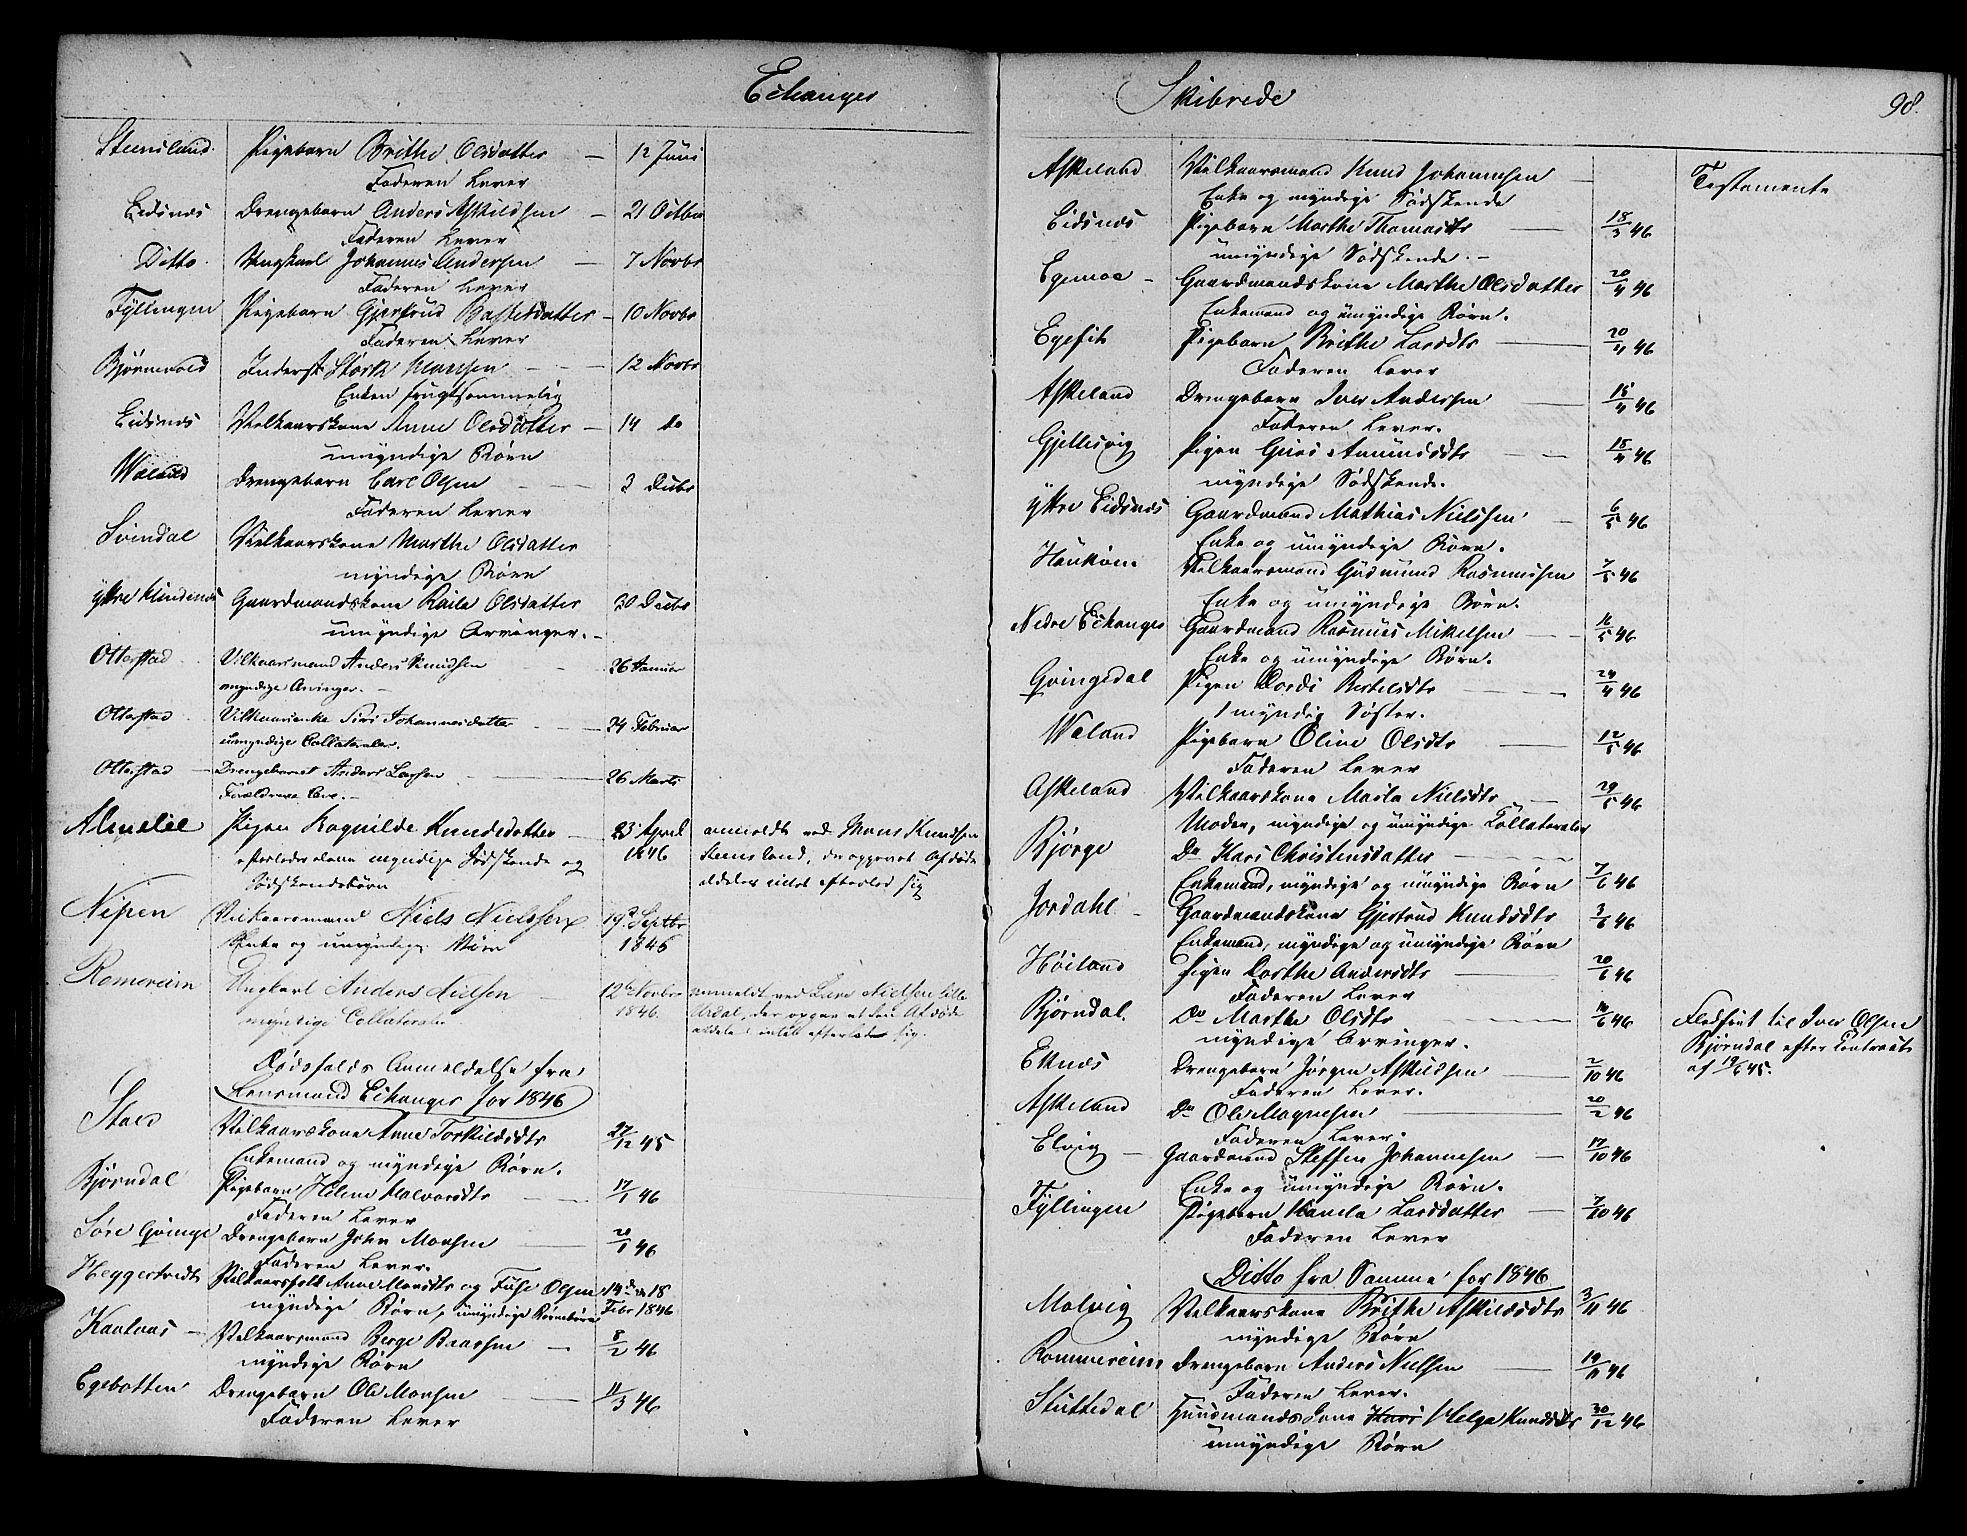 Echanger
Steensland. Pigebarn Brithe Olsdatter — 12 Juni
Faderen Lever
Eidsnæs Drengebarn Anders Askildsen — 21 Octbr
Faderen Lever
Ditto. Ungkarl Johannes Andersen — 7 Novbr
Faderen Lever
Fyllingen Pigebarn Gjertrud Bastesdatter — 10 Novbr
Faderen Lever
Inderst Størk Monsen — 12 Novbr
Enken frugtsommelig
Eidsnæs Velkaarskone Anne Olsdatter — 14 do
umyndige Børn
Waland Drengebarn Carl Olsen — 3 Decbr
Faderen Lever
Svindal Velkaarskone Marthe Olsdatter
myndige Børn
Gaardmandskone Raila Olsdatter 20 Decbr
umyndige Arvinger. —
Otterstad Vilkaarsmand Anders Knudsen 26 Januar
myndige Arvinger. —
Otterstad Vilkaarsenke Siri Johannesdatter — 24 Februar
umyndige Collateraler.
Otterstad — Drengebarnet Anders Larsen — 26 Marts
Forældrene Leve. —
Almelie Pigen Ragnilde Knudsdatter — 23 April anmeldt ved Mons Knudsen
efterlader alene myndige Sødskende og 1846 Steensland, der opgivet Afdøde
Sødskendebørn aldeles intet efterlod sig
Nipen Vilkaarsmand Niels Nielssen 19. Septbr
Enke og umyndige Børn 1846
Romereim Ungkarl Anders Nielsen — 12 Novbr anmeldt ved Nielsen Lille
myndige Collateraler 1846. Urdal, der opgav at den Afdøde
aldeles intet efterlod sig.
Dødsfalds Anmeldelse fra
Lensmand Echanger for 1846
Velkaarskone Anne Torkildsdtr 27/12 45
Enkemand og myndige Børn.
Bjørndal Pigebarn Helene Halvorsdtr — 17/1 46
Faderen Lever
Søre Qvinge Drengebarn John Monsen — 20/1 46
Faderen Lever.
Heggertvedt Velkaarsfolk Anne Monsdtr og Fuse Olsen 14de og 18
myndige Børn, umyndige Børnebørn Febr 1846
Velkaarsmand Berge Baarsen — 8/2 46
myndige Børn
Egebotten Drengebarn Ole Monsen — 11/3 46
Faderen Lever
Skibrede 98.
Askeland Velkaarsmand Knud Johannesen — Testamente
Enke og myndige Sødskende
Eidsnæs Pigebarn Marthe Thomasdtr — 18/3 46
umyndige Sødskende. —
Egemoe — Gaardmandskone Marthe Olsdatter 20/4 46
Enkemand og umyndige Børn.
Egefit Pigebarn Brithe Larsdtr — 20/4 46
Faderen Lever
Askeland Drengebarn Iver Andersen — 15/4 46
Faderen Lever.
Gjellesvig Pigen Guri Amundsdtr — 18/4 46
myndige Sødskende.
Yttre Eidsnæs Gaardmand Mathias Nielsen — 6/5 46
Enke og umyndige Børn.
Velkaarsmand Gudmund Rasmussen 7/5 46
Enke og umyndige Børn.
Nedre Echanger Gaardmand Rasmus Mikelsen — 16/5 46
Enke og umyndige Børn.
Qvingedal Pigen Dordi Bertelsdtr — 24/4 46
1 myndig Søster.
Waland Pigebarn Oline Olsdtr — 12/5 46
Faderen Lever
Askeland Velkaarskone Marta Nielsdtr — 29/5 46
Moder, myndige og umyndige Collateraler
Bjørge Do Kari Christensdatter — 7/6 46
Enkemand, myndige og umyndige Børn
Jordahl — Gaardmandskone Gjertrud Knudsdtr 3/6 46
Enkemand, myndige og umyndige Børn
Høiland Pigen Dorthe Andersdtr — 20/6 46
Faderen Lever
Bjørndal. Do Marthe Olsdtr — 16/6 46 Fledført til Iver Olsen
myndige Arvinger. Bjørndal efter Contract
Eknæs Drengebarn Jørgen Askildsen — 2/10 46 af 19/6 45.
Faderen Lever.
Askeland Do Ole Magnesen — 20/2 46
Faderen Lever.
Elvig — Gaardmand Steffen Johannesen — 17/10 46
Enke og umyndige Børn.
Fyllingen Pigebarn Larsdatter — 7/10 46
Faderen Lever
Ditto fra Samme for 1846
Molvig Velkaarskone Brithe Askildsdtr 3/11 46
myndige Børn
Rommereim Drengebarn Anders Nielsen — 19/11 46
Faderen Lever.
Stuttedal Huusmandskone Helga Knudsdtr 30/12 46
umyndige Børn